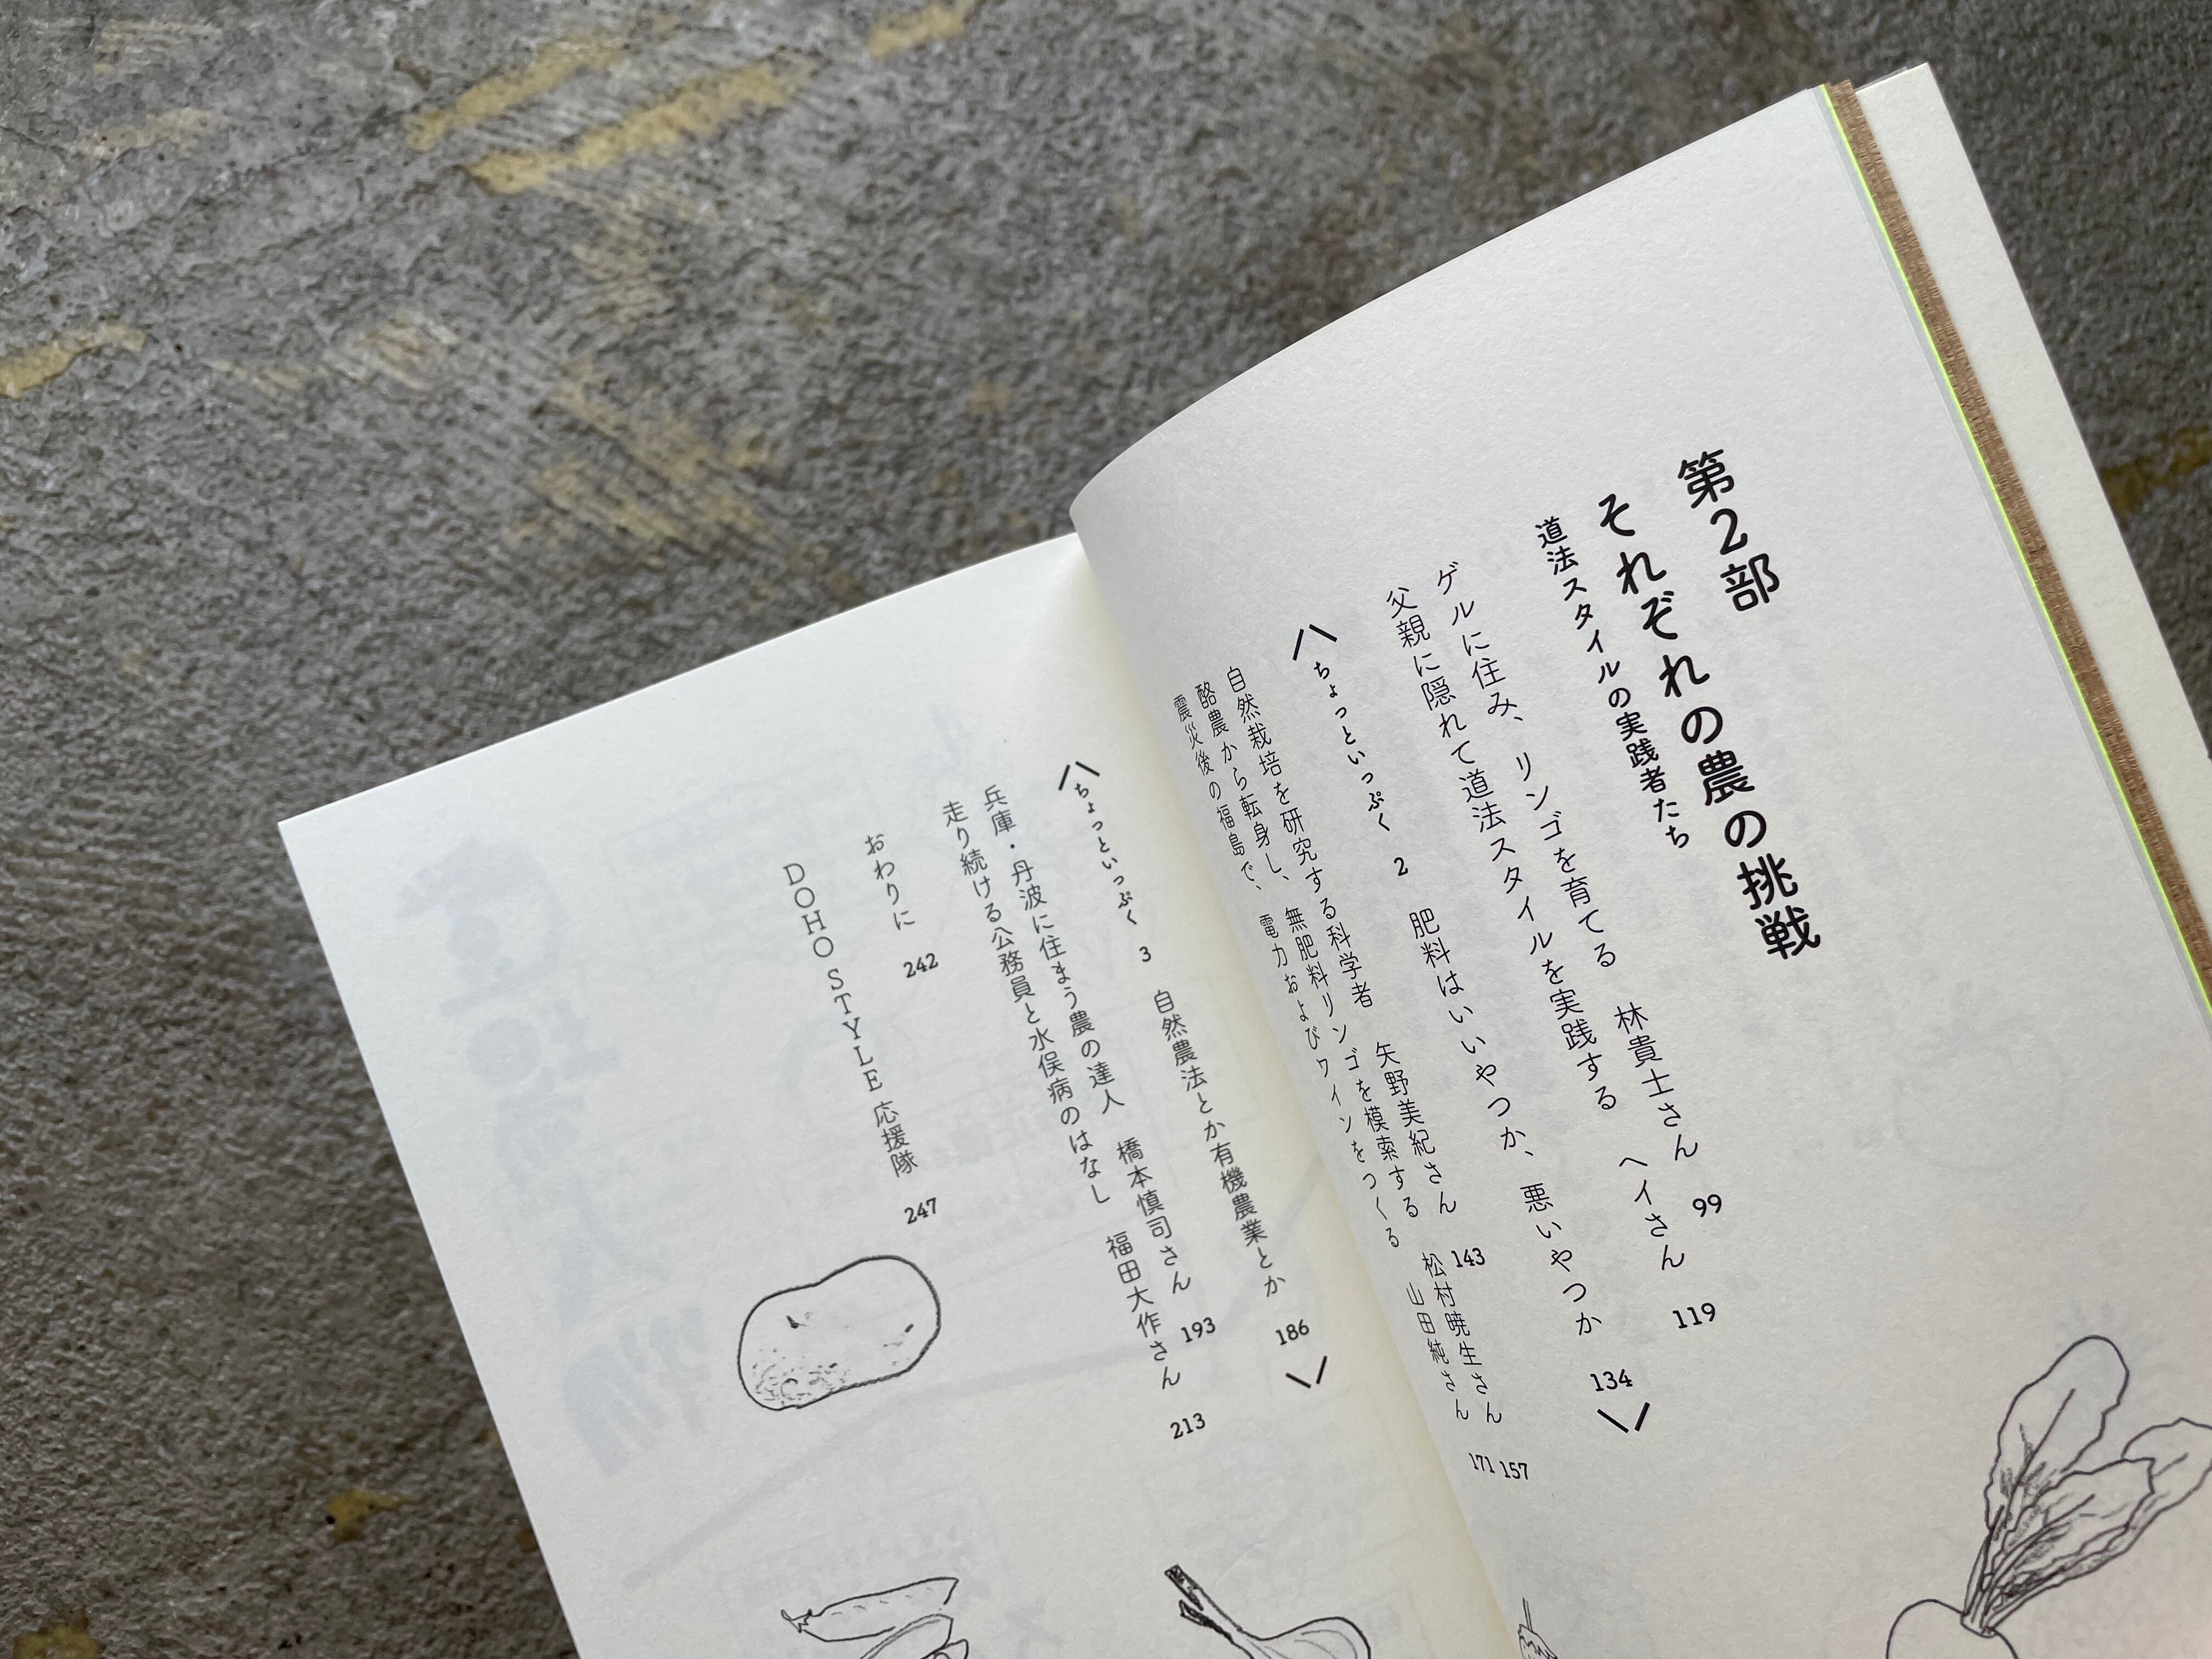 第2部
それぞれの農の挑戦
道法スタイルの実践者たち
ゲルに住み、リンゴを育てる 林貴士さん 99
父親に隠れて道法スタイルを実践する ヘイさん 119
ちょっといっぷく 2 肥料はいいやつか、悪いやつか 134
自然栽培を研究する科学者 矢野美紀さん 143
酪農から転身し、無肥料リンゴを模索する 松村暁生さん 157
震災後の福島で、電力およびワインをつくる 山田純さん 171
ちょっといっぷく 3 自然農法とか有機農業とか 186
兵庫・丹波に住まう農の達人 橋本慎司さん 193
走り続ける公務員と水俣病のはなし 福田大作さん 213
おわりに 242
DOHO STYLE 応援隊 247